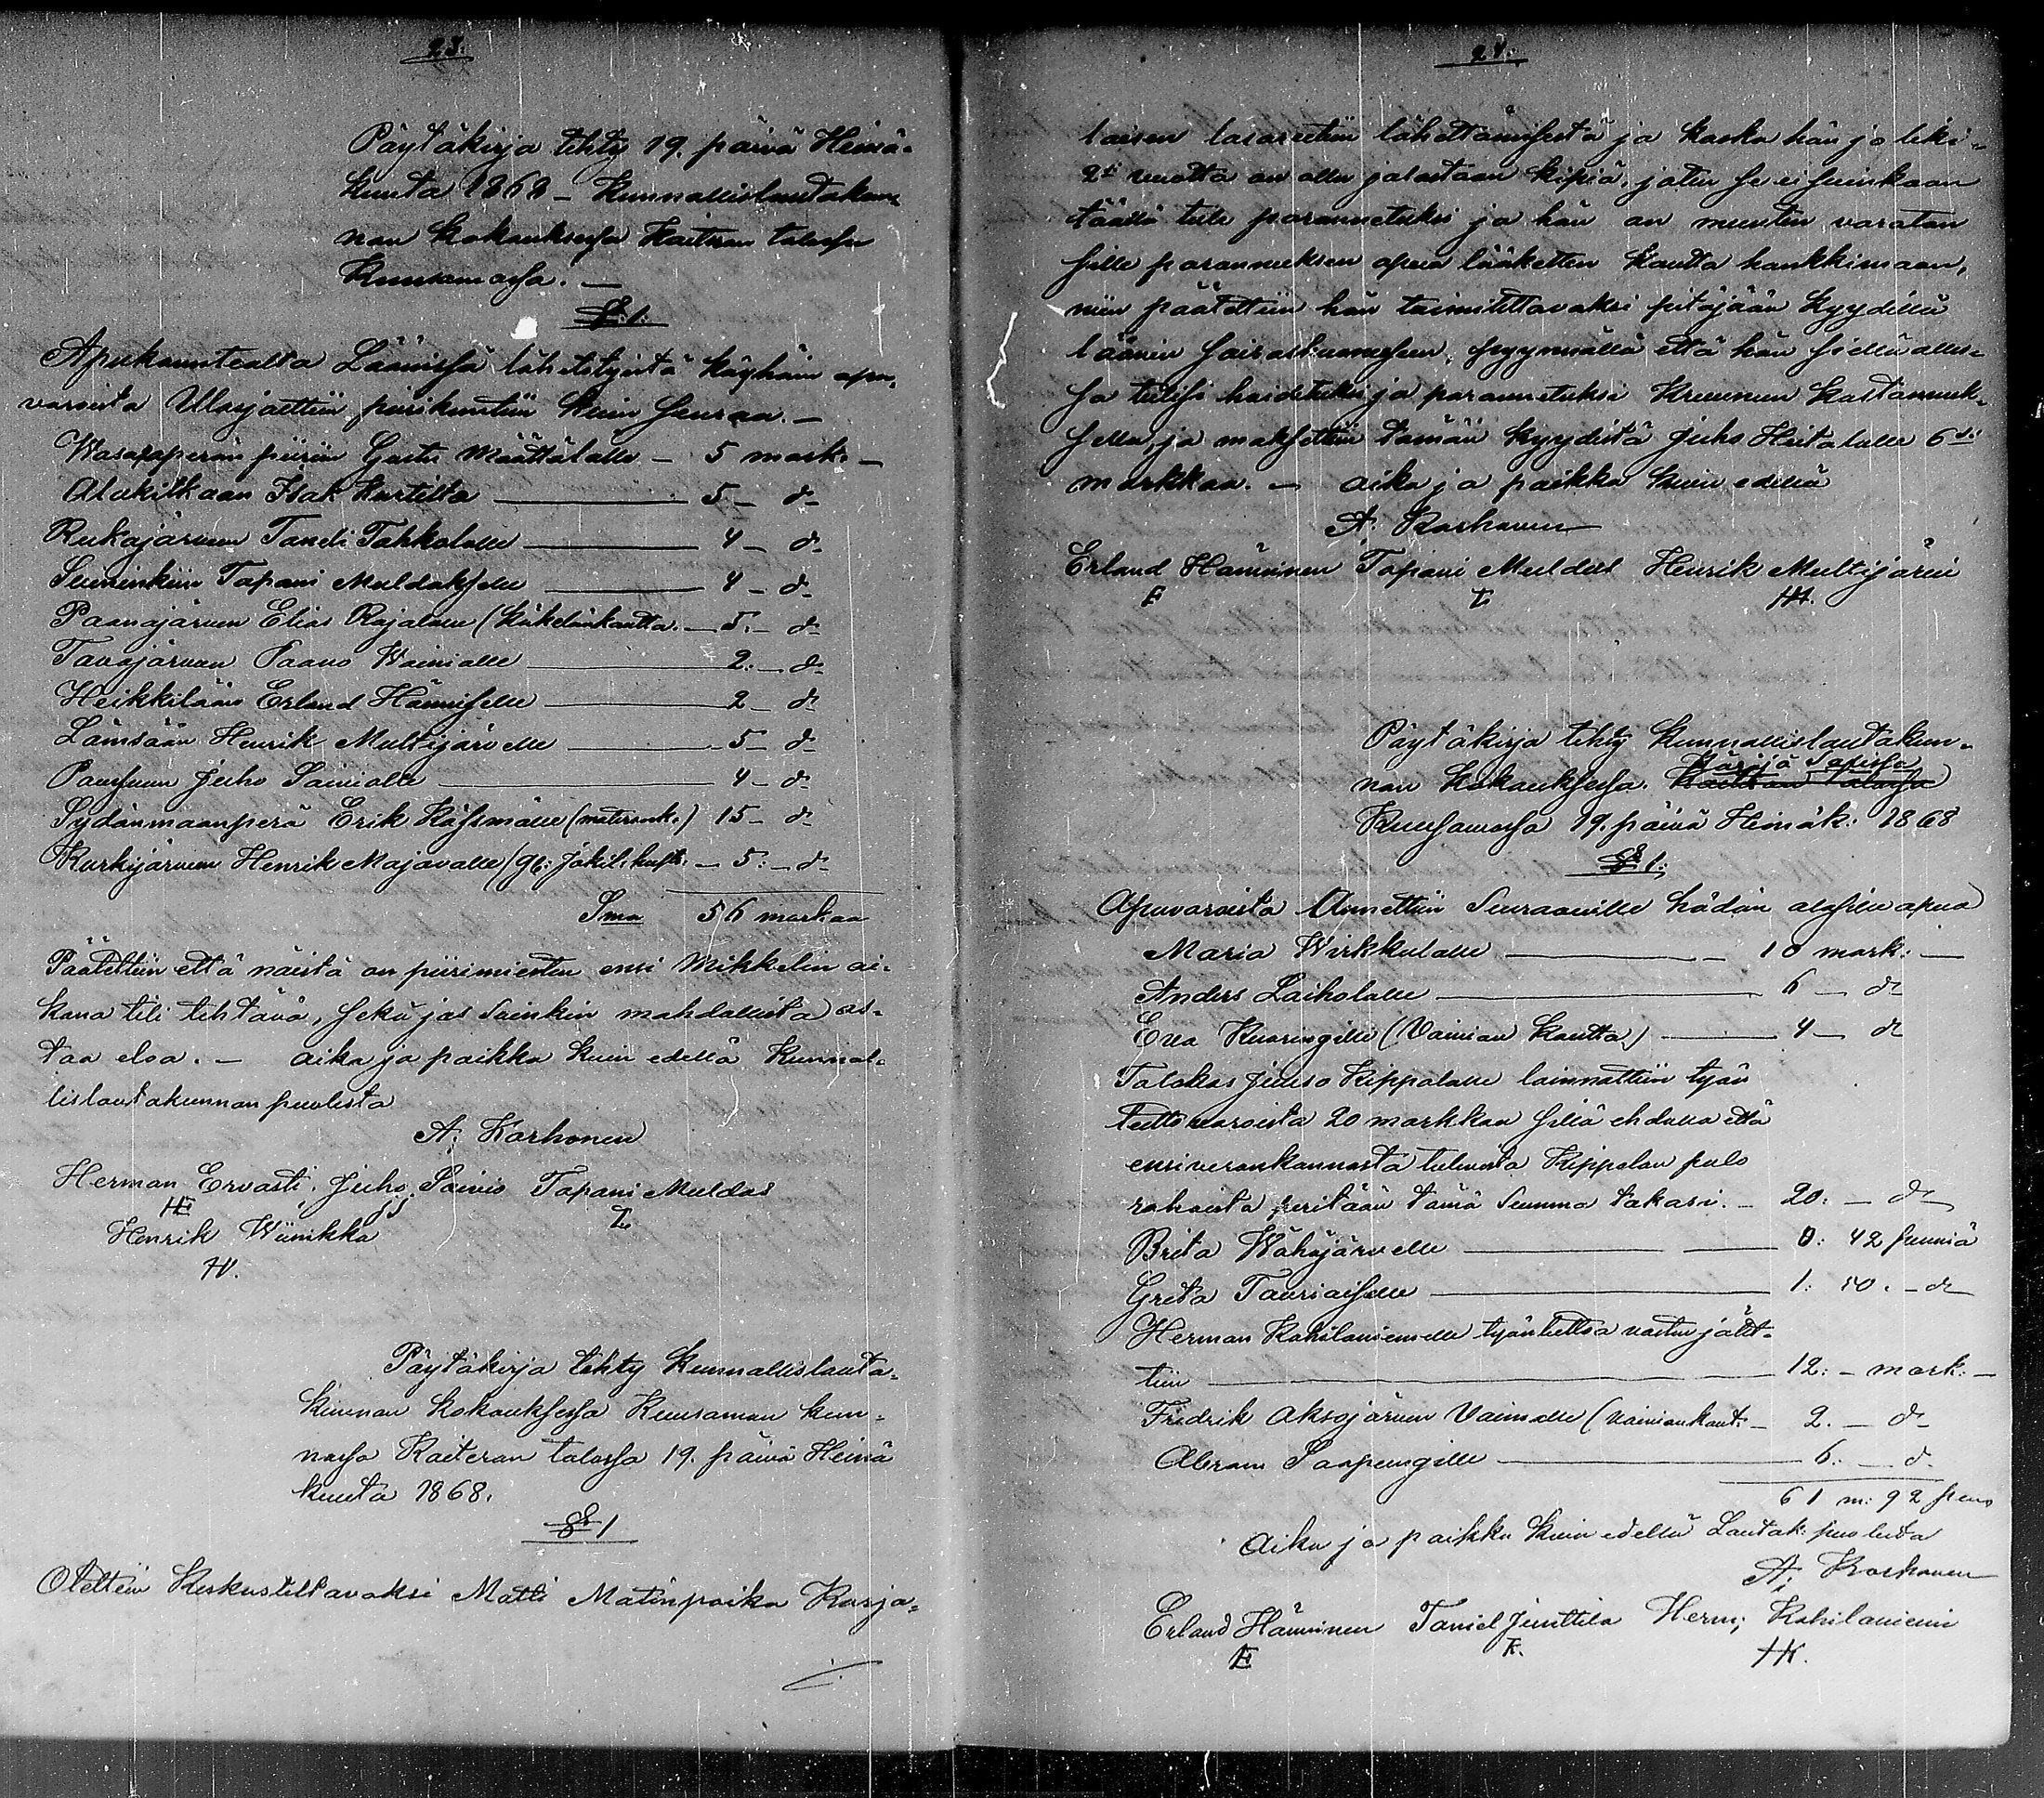 23.
Päytäkirja tehty 19. päivä Heinä-
kuuta 1868 – Kunnallislautakun-
nan kokouksessa Kaiteran talossa
Kuusamossa. –
§ 1.
Apukomitealta Läänissä lähetetyistä köyhäin apu-
varoista Ulosjaettiin piirikuntiin kuin seuraa. –
Wasaraperän piiriin Gustu Määttälälle – 5 mark: –
Alakitkaan Isak Kurtilta – 5 – d:
Rukajärveen Taneli Tahkolalle – 4 – d:
Suininkiin Tapani Muldakselle – 4 – d:
Paanajärveen Elias Rajalalle (Käkelänkautta. – 5. – d:
Tavajärveen Paavo Wainiolle – 2. – d:
Heikkilään Erland Hänniselle – 2 – d:
Lämsään Henrik Multijärvelle – 5 – d:
Poussuun Juho Sainiolle – 4 – d:
Sydänmaanperä Erik Kässmälle 15 – d:
Kurkijärveen Henrik Majavalle – 5: – d:
Sma 56 markaa
Päätettiin että näistä on piirimiesten ensi Mikkelin ai-
kana tili tehtävä, sekä jos Suinkin mahdollista os-
taa eloa. – aika ja paikka kuin edellä Kunnal-
lislautakunnan puolesta
A: Karhonen
Herman Ervasti, Juho Sainio Tapani Muldas
HE JS T.
Henrik Wiinikka
HW.
Päytäkirja tehty Kunnallislauta-
kunnan kokouksessa Kuusamon kun-
nassa Kaiteran talossa 19. päivä Heinä
kuuta 1868.
§ 1
Otettiin Keskusteltavaksi Matti Matinpoika Karja-
24.
laisen lasarettiin lähettämisestä ja koska hän jo liki-
2:i vuotta on ollu jalastaan kipiä, joten se ei suinkaan
täällä tule parannetuksi ja hän on muuten varaton
sille parannuksen apua lääketten kautta hankkimaan,
niin päätettiin hän toimitettavaksi pitäjään kyydillä
läänin Sairashuoneseen, pyynnöllä että hän siellä olles-
sa tulisi hoidetuksi ja parannetuksi Kruunun kustannuk-
sella, ja maksettiin tämän kyydistä Juho Heitalalle 6:si
markkaa. – aika ja paikka kuin edellä
A: Karhonen
Erland Hänninen Tapani Muldas Henrik Multijärvi
E T. HM.
Päytäkirja tehty Kunnallislautakun-
nan kokouksessa. Kaiteran talossa
Kuusamossa 19. päivä Heinäk: 1868
§ 1:
Apuvaroista Annettiin Seuraaville hädän alasille apua
Maria Wirkkulalle – 10 mark: –
Anders Laiholalle – 6 – d:
Eva Kuoringille (Vainion kautta) – 4 – d:
Talokas Juuso Kippolalle lainnattiin työn
teettovaroista 20 markkaa sillä ehdolla että
ensiveronkannosta tulevista Kippolan palo
rahoista peritään tämä Summa takasi. – 20: – d:
Brita Wähäjärvelle – 0: 42 penniä
Greta Tauriaiselle – 1: 50. – d:
Herman Kohilaniemelle työnteettoa vasten jätet-
tiin – 12: – mark: –
Fredrik Aksojärven Vaimolle (Vainionkaut: – 2. – d:
Abram Saapungille – 6: – d:
61 m: 92 pens
Aika ja paikka kuin edellä Lautak: puolesta
A: Karhonen
Erland Hänninen Taniel Junttila Herm; Kohilaniemi
E T. HK.